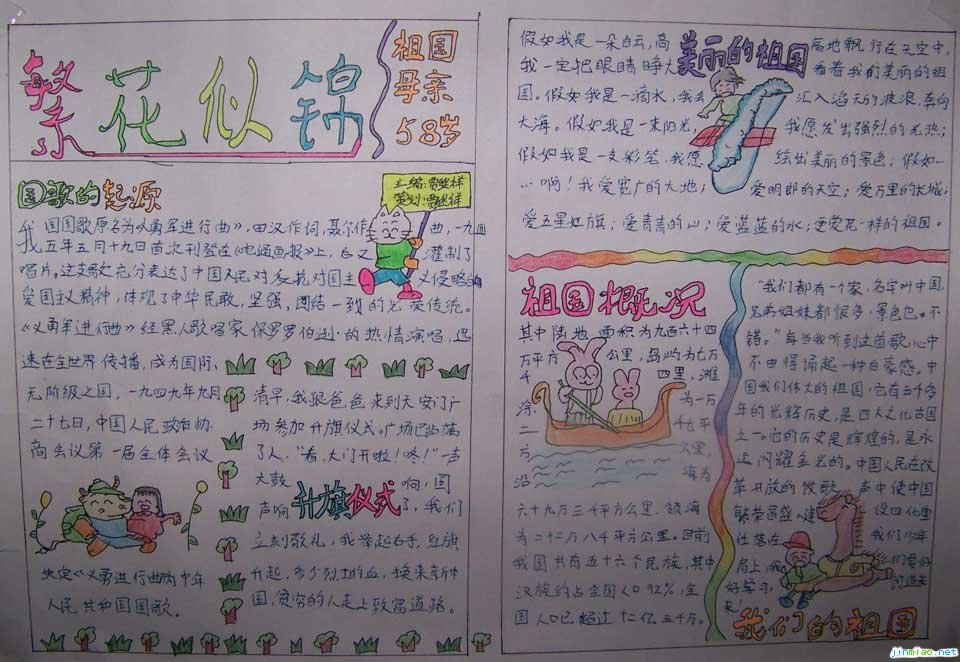 繁花似锦
祖国
母亲
58岁
国歌的起源
主编:
策划:
我国国歌原名为《义勇军进行曲》,田汉作词,聂尔作曲,一九三
五年五月十九日首次刊登在《电通画报》上,后又灌制了
唱片。这支歌充分表达了中国人民对反抗对国主义侵略的
爱国主义精神,体现了中华民敢,坚强,团结一致的光荣传统。
《义勇军进行曲》经黑人歌唱家保罗罗伯逊的热情演唱,迅
速在全世界传播,成为国际
无阶级之国,一九四九年九月
二十七日,中国人民政治协
商会议第一届全体会议
决定《义勇进行曲》为中华
人民共和国国歌。
清早,我跟爸爸来到天安门广
场参加升旗仪式。广场已站满
了人,“看,大门开啦!咚!”一声
大鼓响,国
声响了,我们
升旗仪式
立刻敬礼,我举起右手,红旗
升起,多少烈士的血,换来新中
国,贫穷的人走上致富道路。
美丽的祖国
假如我是一朵白云,高高地飘行在天空中,
我一定把眼睛睁大看看我们美丽的祖
国。假如我是一滴水,我会汇入滔天的波浪,奔向
大海。假如我是一束阳光,我愿发出强烈的光热;
假如我是一支彩笔,我愿绘出美丽的景色;假如…
…啊!我爱宽广的大地;爱明郎的天空;爱万里的长城,
爱五星红旗;爱青青的山;爱蓝蓝的水;更爱花一样的祖国。
祖国概况
其中陆地面积为九百六十四
万平方公里,岛屿为七万
千四里,滩
涂为一万
二千七平
万公里,
沿海为
六十九万三千平方公里,领海
为二十二万八千平方公里。目前
我国共有五十六个民族,其中
汉族约占全国人口92%,全
国人口已超过十二亿三千万。
“我们都有一个家,名字叫中国,
兄弟姐妹都很多,景色也不
错。”每当我听到这首歌,心中
不由得涌起一种自豪感。中
国我们伟大的祖国,它有五千多
年的光辉历史,是四大文化古国
之一。它的历史是辉煌的,是永
远闪耀金光的。中国人民在改
革开放的牧歌声中使中国
繁荣昌盛,建设四化重
任落在我们少年
肩上,我们要好
好学习,
来!
我们的祖国
jinmiao.net